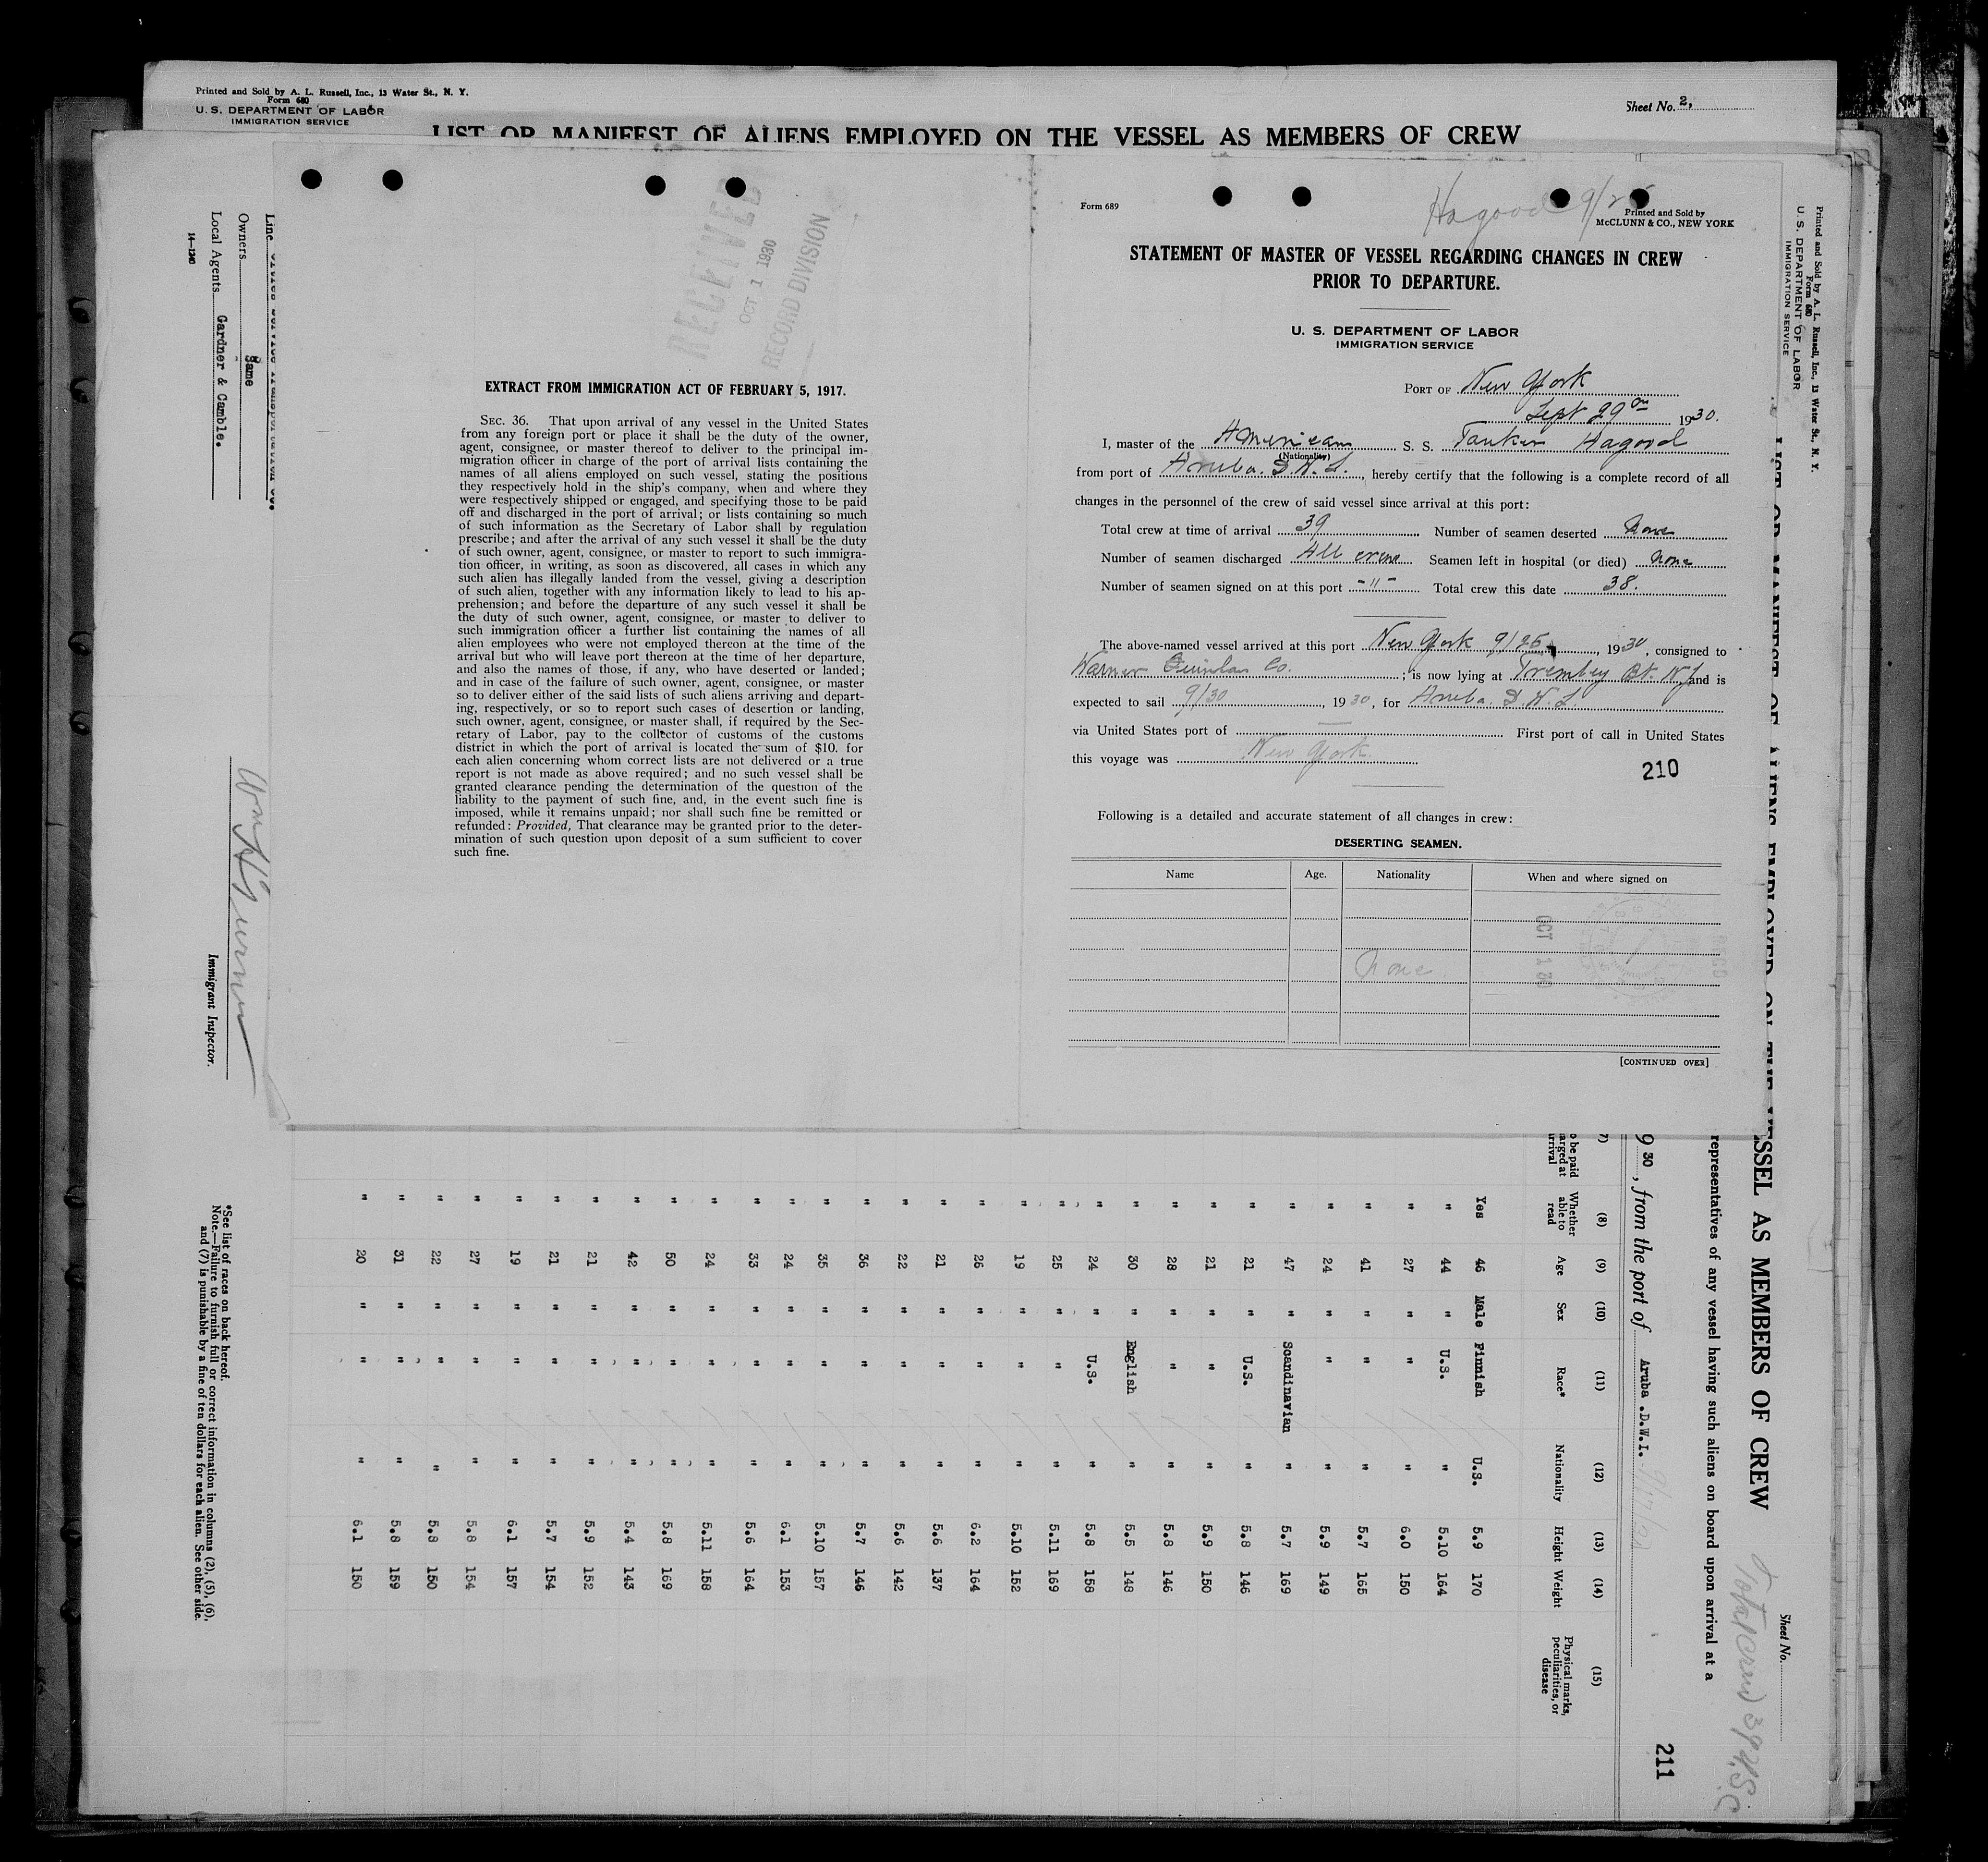 Printed and Sold by A. L. Russell, Inc., 13 Water St., N. Y.
Form 680
U. S. DEPARTMENT OF LABOR
IMMIGRATION SERVICE
Sheet No. 2,
LIST OR MANIFEST OF ALIENS EMPLOYED ON THE VESSEL AS MEMBERS OF CREW
RECEIVED
OCT 1 1930
RECORD DIVISION
EXTRACT FROM IMMIGRATION ACT OF FEBRUARY 5, 1917.
SEC. 36. That upon arrival of any vessel in the United States
from any foreign port or place it shall be the duty of the owner,
agent, consignee, or master thereof to deliver to the principal im-
migration officer in charge of the port of arrival lists containing the
names of all aliens employed on such vessel, stating the positions
they respectively hold in the ship's company, when and where they
were respectively shipped or engaged, and specifying those to be paid
off and discharged in the port of arrival; or lists containing so much
of such information as the Secretary of Labor shall by regulation
prescribe; and after the arrival of any such vessel it shall be the duty
of such owner, agent, consignee, or master to report to such immigra-
tion officer, in writing, as soon as discovered, all cases in which any
such alien has illegally landed from the vessel, giving a description
of such alien, together with any information likely to lead to his ap-
prehension; and before the departure of any such vessel it shall be
the duty of such owner, agent, consignee, or master to deliver to
such immigration officer a further list containing the names of all
alien employees who were not employed thereon at the time of the
arrival but who will leave port thereon at the time of her departure,
and also the names of those, if any, who have deserted or landed;
and in case of the failure of such owner, agent, consignee, or master
so to deliver either of the said lists of such aliens arriving and depart-
ing, respectively, or so to report such cases of desertion or landing,
such owner, agent, consignee, or master shall, if required by the Sec-
retary of Labor, pay to the collector of customs of the customs
district in which the port of arrival is located the sum of $10. for
each alien concerning whom correct lists are not delivered or a true
report is not made as above required; and no such vessel shall be
granted clearance pending the determination of the question of the
liability to the payment of such fine, and, in the event such fine is
imposed, while it remains unpaid; nor shall such fine be remitted or
refunded: Provided, That clearance may be granted prior to the deter-
mination of such question upon deposit of a sum sufficient to cover
such fine.
Hagood 9/25
Form 689
Printed and Sold by
McCLUNN & CO., NEW YORK
STATEMENT OF MASTER OF VESSEL REGARDING CHANGES IN CREW
PRIOR TO DEPARTURE.
U. S. DEPARTMENT OF LABOR
IMMIGRATION SERVICE
PORT OF New York
Sept 29 1930.
I, master of the American S. S. Tanker Hagood
(Nationality)
from port of Aruba. D.W.I., hereby certify that the following is a complete record of all
changes in the personnel of the crew of said vessel since arrival at this port:
Total crew at time of arrival 39 Number of seamen deserted None
Number of seamen discharged All crew Seamen left in hospital (or died) None
Number of seamen signed on at this port -"- Total crew this date 38.
The above-named vessel arrived at this port New York 9/25, 1930, consigned to
Warner Quinlan Co.; is now lying at Trembley Pt. N.J. and is
expected to sail 9/30, 1930, for Aruba. D.W.I.
via United States port of First port of call in United States
this voyage was New York.
210
Following is a detailed and accurate statement of all changes in crew:
DESERTING SEAMEN.
Name Age. Nationality When and where signed on
None
OCT 1 30
[CONTINUED OVER]
Printed and Sold by A. L. Russell, Inc., 13 Water St., N. Y.
Form 680
U. S. DEPARTMENT OF LABOR
IMMIGRATION SERVICE
Sheet No.
LIST OR MANIFEST OF ALIENS EMPLOYED ON THE VESSEL AS MEMBERS OF CREW
Total crew 39 U.S.C
representatives of any vessel having such aliens on board upon arrival at a
9 30, from the port of Aruba .D.W.I.
211
7) (8) (9) (10) (11) (12) (13) (14) (15)
o be paid arged at rrival Whether able to read Age Sex Race* Nationality Height Weight Physical marks, peculiarities, or disease
Yes 46 Male Finnish U.S. 5.9 170
" 44 " U.S. " 5.10 164
" 27 " " " 6.0 150
" 41 " " " 5.7 165
" 24 " " " 5.9 149
" 47 " Scandinavian " 5.7 169
" 21 " U.S. " 5.8 146
" 21 " " " 5.9 150
" 28 " " " 5.8 146
" 30 " English " 5.5 148
" 24 " U.S. " 5.8 158
" 25 " " " 5.11 169
" 19 " " " 5.10 152
" 26 " " " 6.2 164
" 21 " " " 5.6 137
" 22 " " " 5.6 142
" 36 " " " 5.7 146
" 35 " " " 5.10 157
" 24 " " " 6.1 153
" 33 " " " 5.6 164
" 24 " " " 5.11 158
" 50 " " " 5.8 169
" 42 " " " 5.4 143
" 21 " " " 5.9 152
" 21 " " " 5.7 154
" 19 " " " 6.1 157
" 27 " " " 5.8 154
" 22 " " " 5.8 150
" 31 " " " 5.8 159
" 20 " " " 6.1 150
Line
Owners Same
Local Agents Gardner & Camble.
14—1240
Immigrant Inspector.
*See list of races on back hereof.
Note.—Failure to furnish full or correct information in columns (2), (5), (6),
and (7) is punishable by a fine of ten dollars for each alien. See other side.